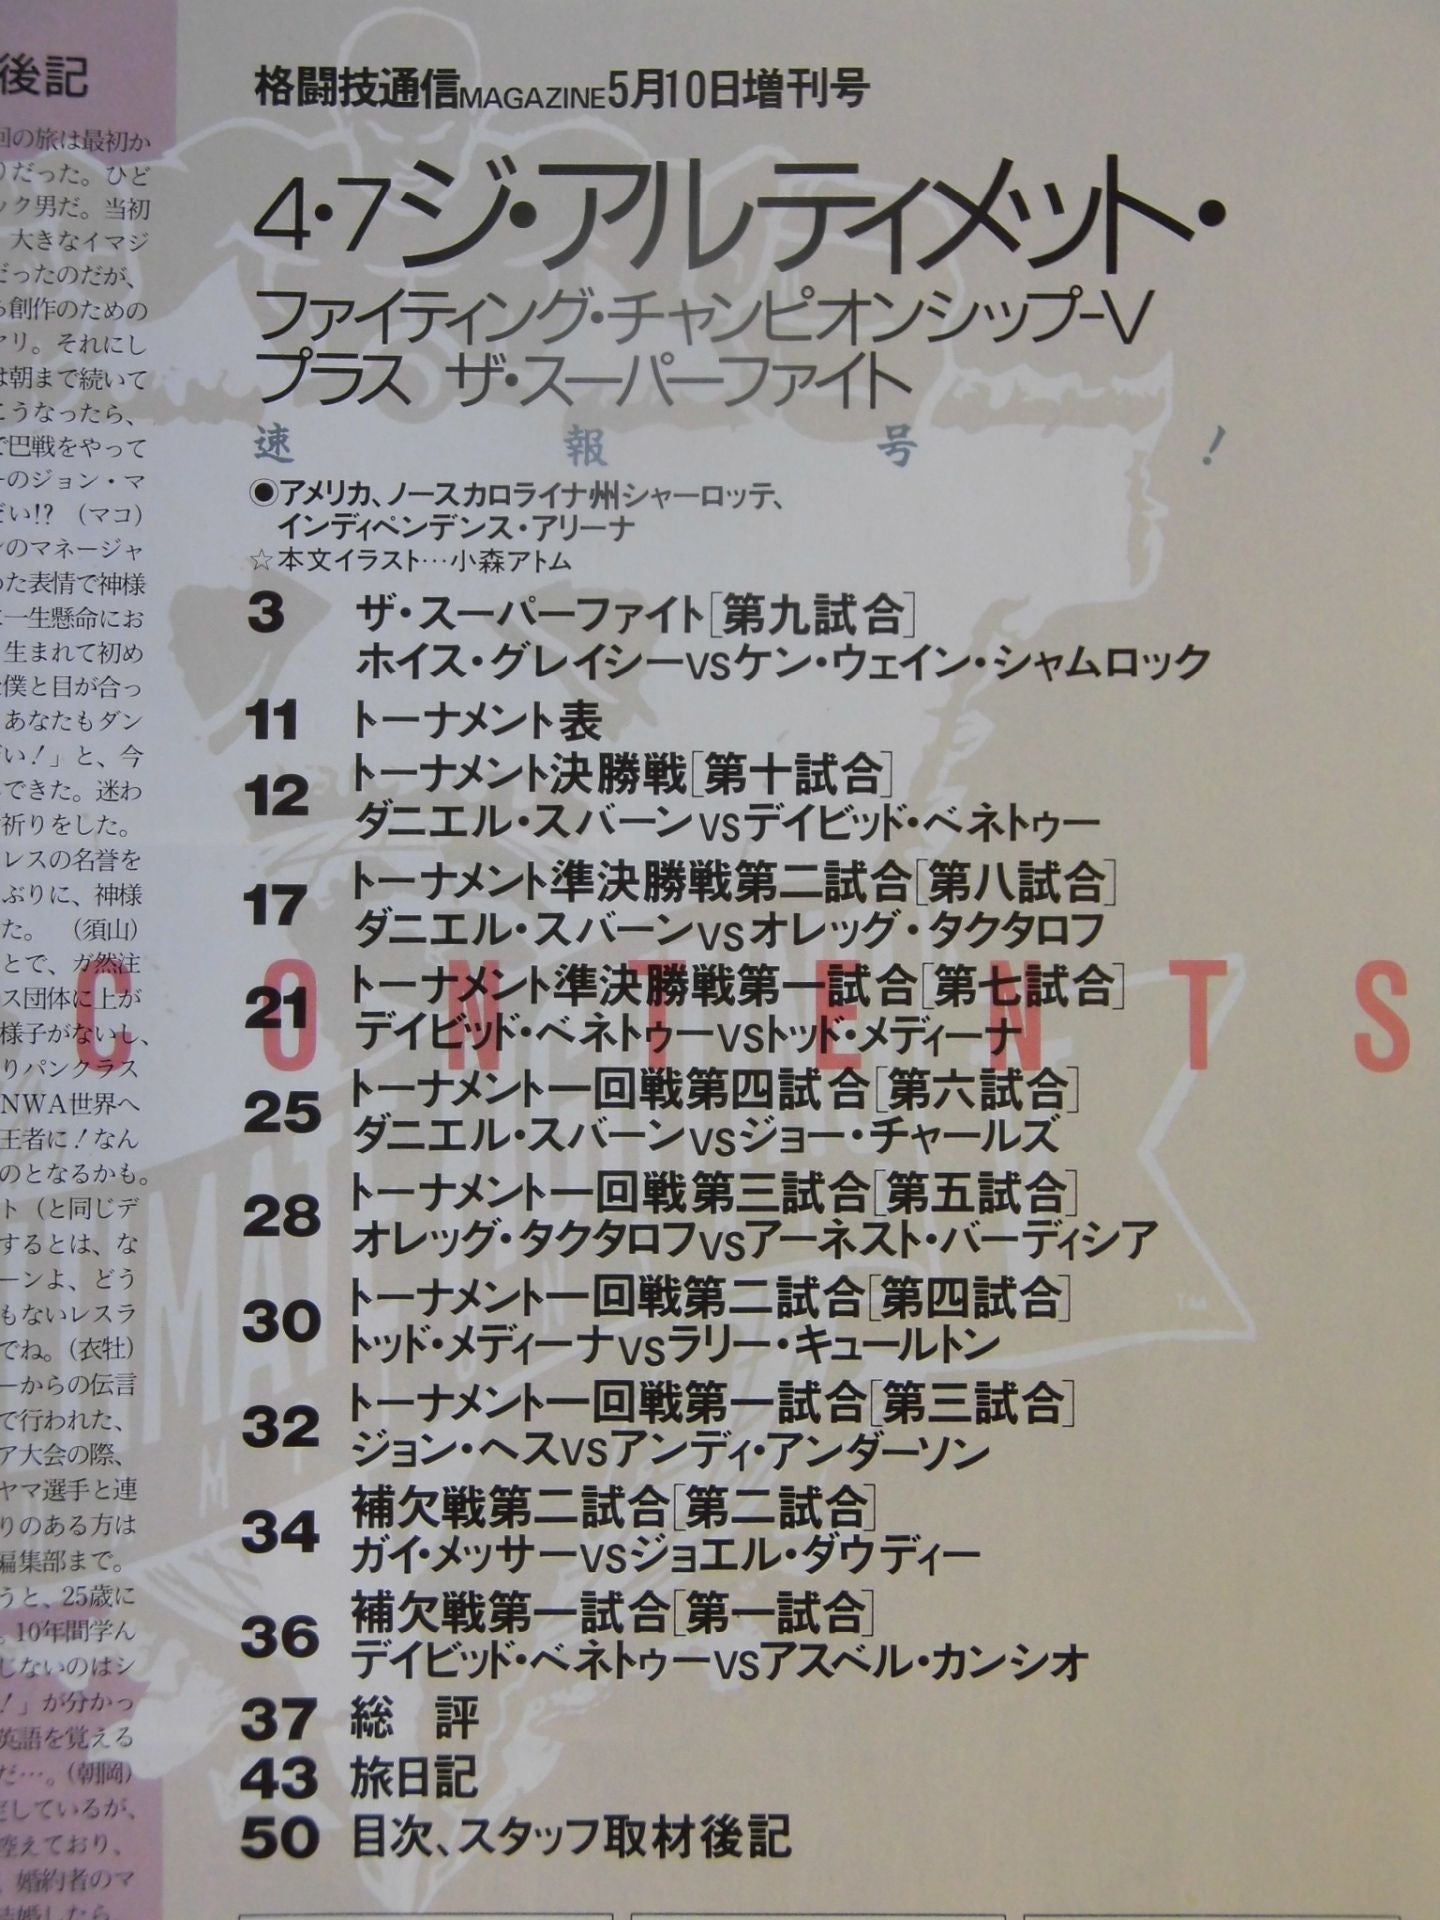 後記
回の旅は最初か
りだった。ひど
ック男だ。当初
、大きなイマジ
だったのだが、
ら創作のための
マリ。それにし
は朝まで続いて
こうなったら、
で巴戦をやって
ーのジョン・マ
ごい!?（マコ）
ンのマネージャ
めた表情で神様
に一生懸命にお
。生まれて初め
に僕と目が合っ
あなたもダン
ざい！」と、今
できた。迷わ
祈りをした。
レスの名誉を
ぶりに、神様
た。（須山）
とで、ガ然注
ス団体に上が
様子がないし、
りパンクラス
NWA世界ヘ
王者に！なん
のとなるかも。
ト（と同じデ
するとは、な
ーンよ、どう
もないレスラ
でね。（衣牡）
ーからの伝言
で行われた、
ア大会の際、
ヤマ選手と連
りのある方は
編集部まで。
うと、25歳に
。10年間学ん
じないのはシ
！」が分かっ
英語を覚える
だ…。（朝岡）
定しているが、
控えており、
、婚約者のマ
結婚したら
格闘技通信MAGAZINE5月10日増刊号
4・7ジ・アルティメット・
ファイティング・チャンピオンシップ-V
プラス ザ・スーパーファイト
速報号！
◉アメリカ、ノースカロライナ州シャーロッテ、
インディペンデンス・アリーナ
☆本文イラスト…小森アトム
3 ザ・スーパーファイト[第九試合]
ホイス・グレイシーvsケン・ウェイン・シャムロック
11 トーナメント表
12 トーナメント決勝戦[第十試合]
ダニエル・スバーンvsデイビッド・ベネトゥー
17 トーナメント準決勝戦第二試合[第八試合]
ダニエル・スバーンvsオレッグ・タクタロフ
CONTENTS
21 トーナメント準決勝戦第一試合[第七試合]
デイビッド・ベネトゥーvsトッド・メディーナ
25 トーナメント一回戦第四試合[第六試合]
ダニエル・スバーンvsジョー・チャールズ
28 トーナメント一回戦第三試合[第五試合]
オレッグ・タクタロフvsアーネスト・バーディシア
30 トーナメント一回戦第二試合[第四試合]
トッド・メディーナvsラリー・キュールトン
TM
32 トーナメント一回戦第一試合[第三試合]
ジョン・ヘスvsアンディ・アンダーソン
34 補欠戦第二試合[第二試合]
ガイ・メッサーvsジョエル・ダウディー
36 補欠戦第一試合[第一試合]
デイビッド・ベネトゥーvsアスベル・カンシオ
37 総評
43 旅日記
50 目次、スタッフ取材後記